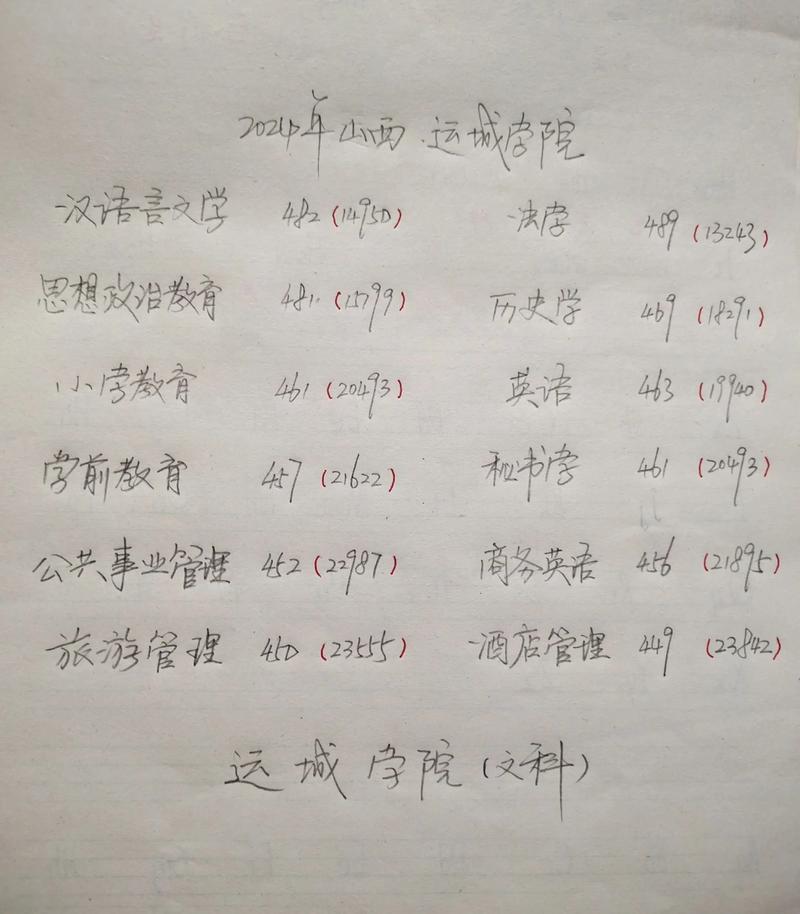 2024年山西运城学院
汉语言文学 482 (14950) 法学 489 (13243)
思想政治教育 481 (15799) 历史学 469 (18291)
小学教育 461 (20493) 英语 463 (19940)
学前教育 457 (21622) 秘书学 461 (20493)
公共事业管理 452 (22987) 商务英语 456 (21895)
旅游管理 450 (23555) 酒店管理 449 (23842)
运城学院(文科)